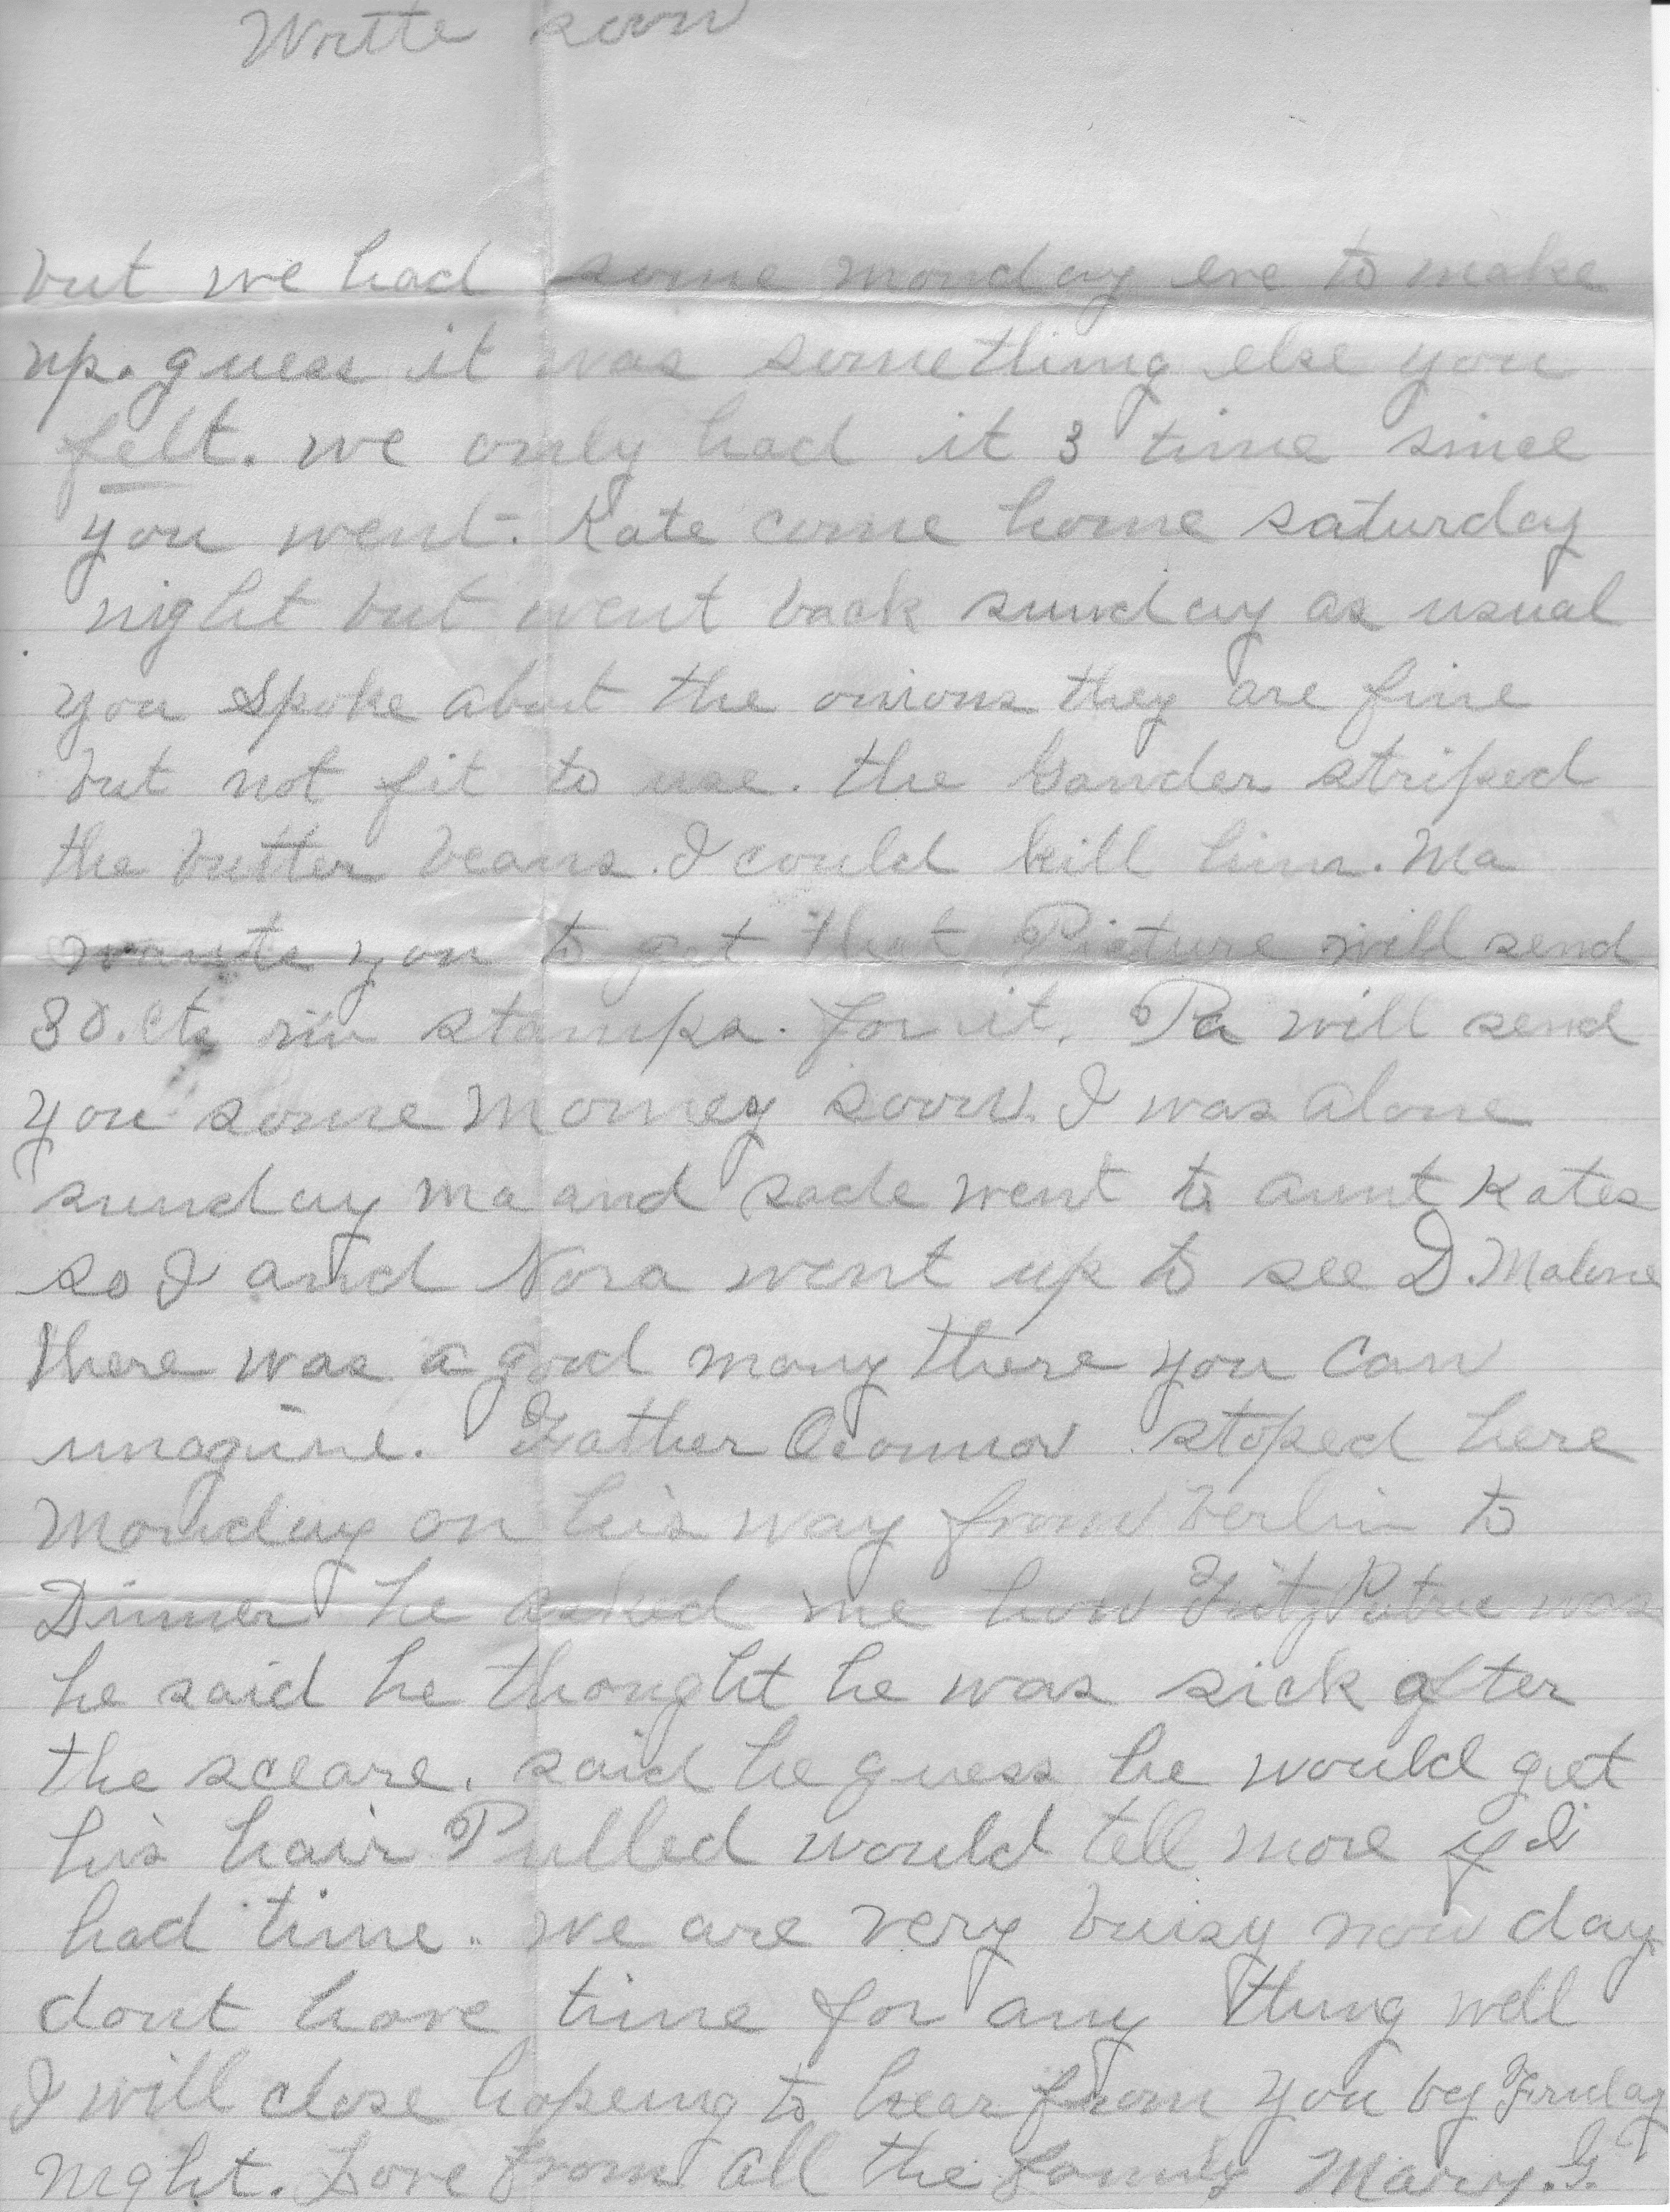 Write soon
but we had some monday eve to make
up. guess it was something else you
felt. we only had it 3 time since
you went. Kate come home saturday
night but went back sunday as usual
you spoke about the onions they are fine
but not fit to use. the Gander striped
the butter beans. I could kill him. Ma
wants you to get that Picture will send
30. cts in stamps. for it. Pa will send
you some money soon. I was alone
sunday ma and sade went to aunt Kates
so I and Nora went up to see D. Malone
there was a good many there you can
imagine. Father Oconnor stoped here
Monday on his way from Berlin to
Dinner he asked me how FitzPatric was
he said he thought he was sick after
the sceare. said he guess he would get
his hair Pulled would tell more if I
had time.. we are very buisy now day
dont have time for any thing well
I will close hopeing to hear from you by Friday
night. Love from all the family Mary. G.